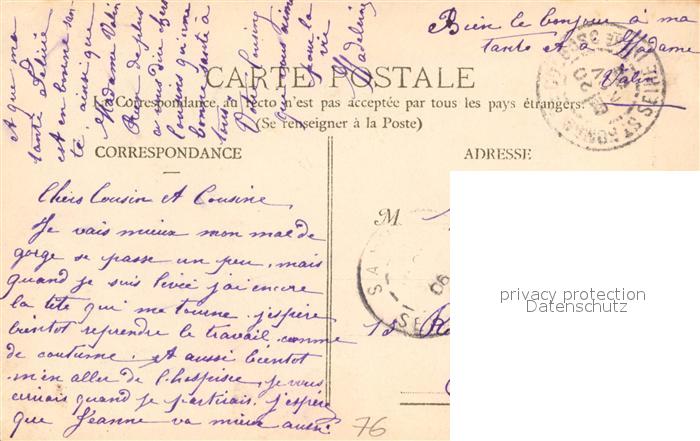 Bien le bonjour à ma
tante et à Madame
Valin
CARTE POSTALE
La Correspondance au recto n'est pas acceptée par tous les pays étrangers.
(Se renseigner à la Poste)
CORRESPONDANCE
ADRESSE
M
Chers Cousin et Cousine
Je vais mieux mon mal de
gorge se passe un peu, mais
quand je suis levée j'ai encore
la tête qui me tourne. j'espère
bientôt reprendre le travail comme
de coutume. et aussi bientôt
m'en aller de l'hospice, je vous
quand je partirais. j'espère
que Jeanne va mieux aussi
et que ma
tante
est en bonne san-
té, ainsi que
Madame Valin
Rien de plus
a vous dire chers
cousins qu'une
bonne santé à
tous
Votre cousine
qui vous aime
pour la
vie
Madeleine
06
18
76
privacy protection
Datenschutz